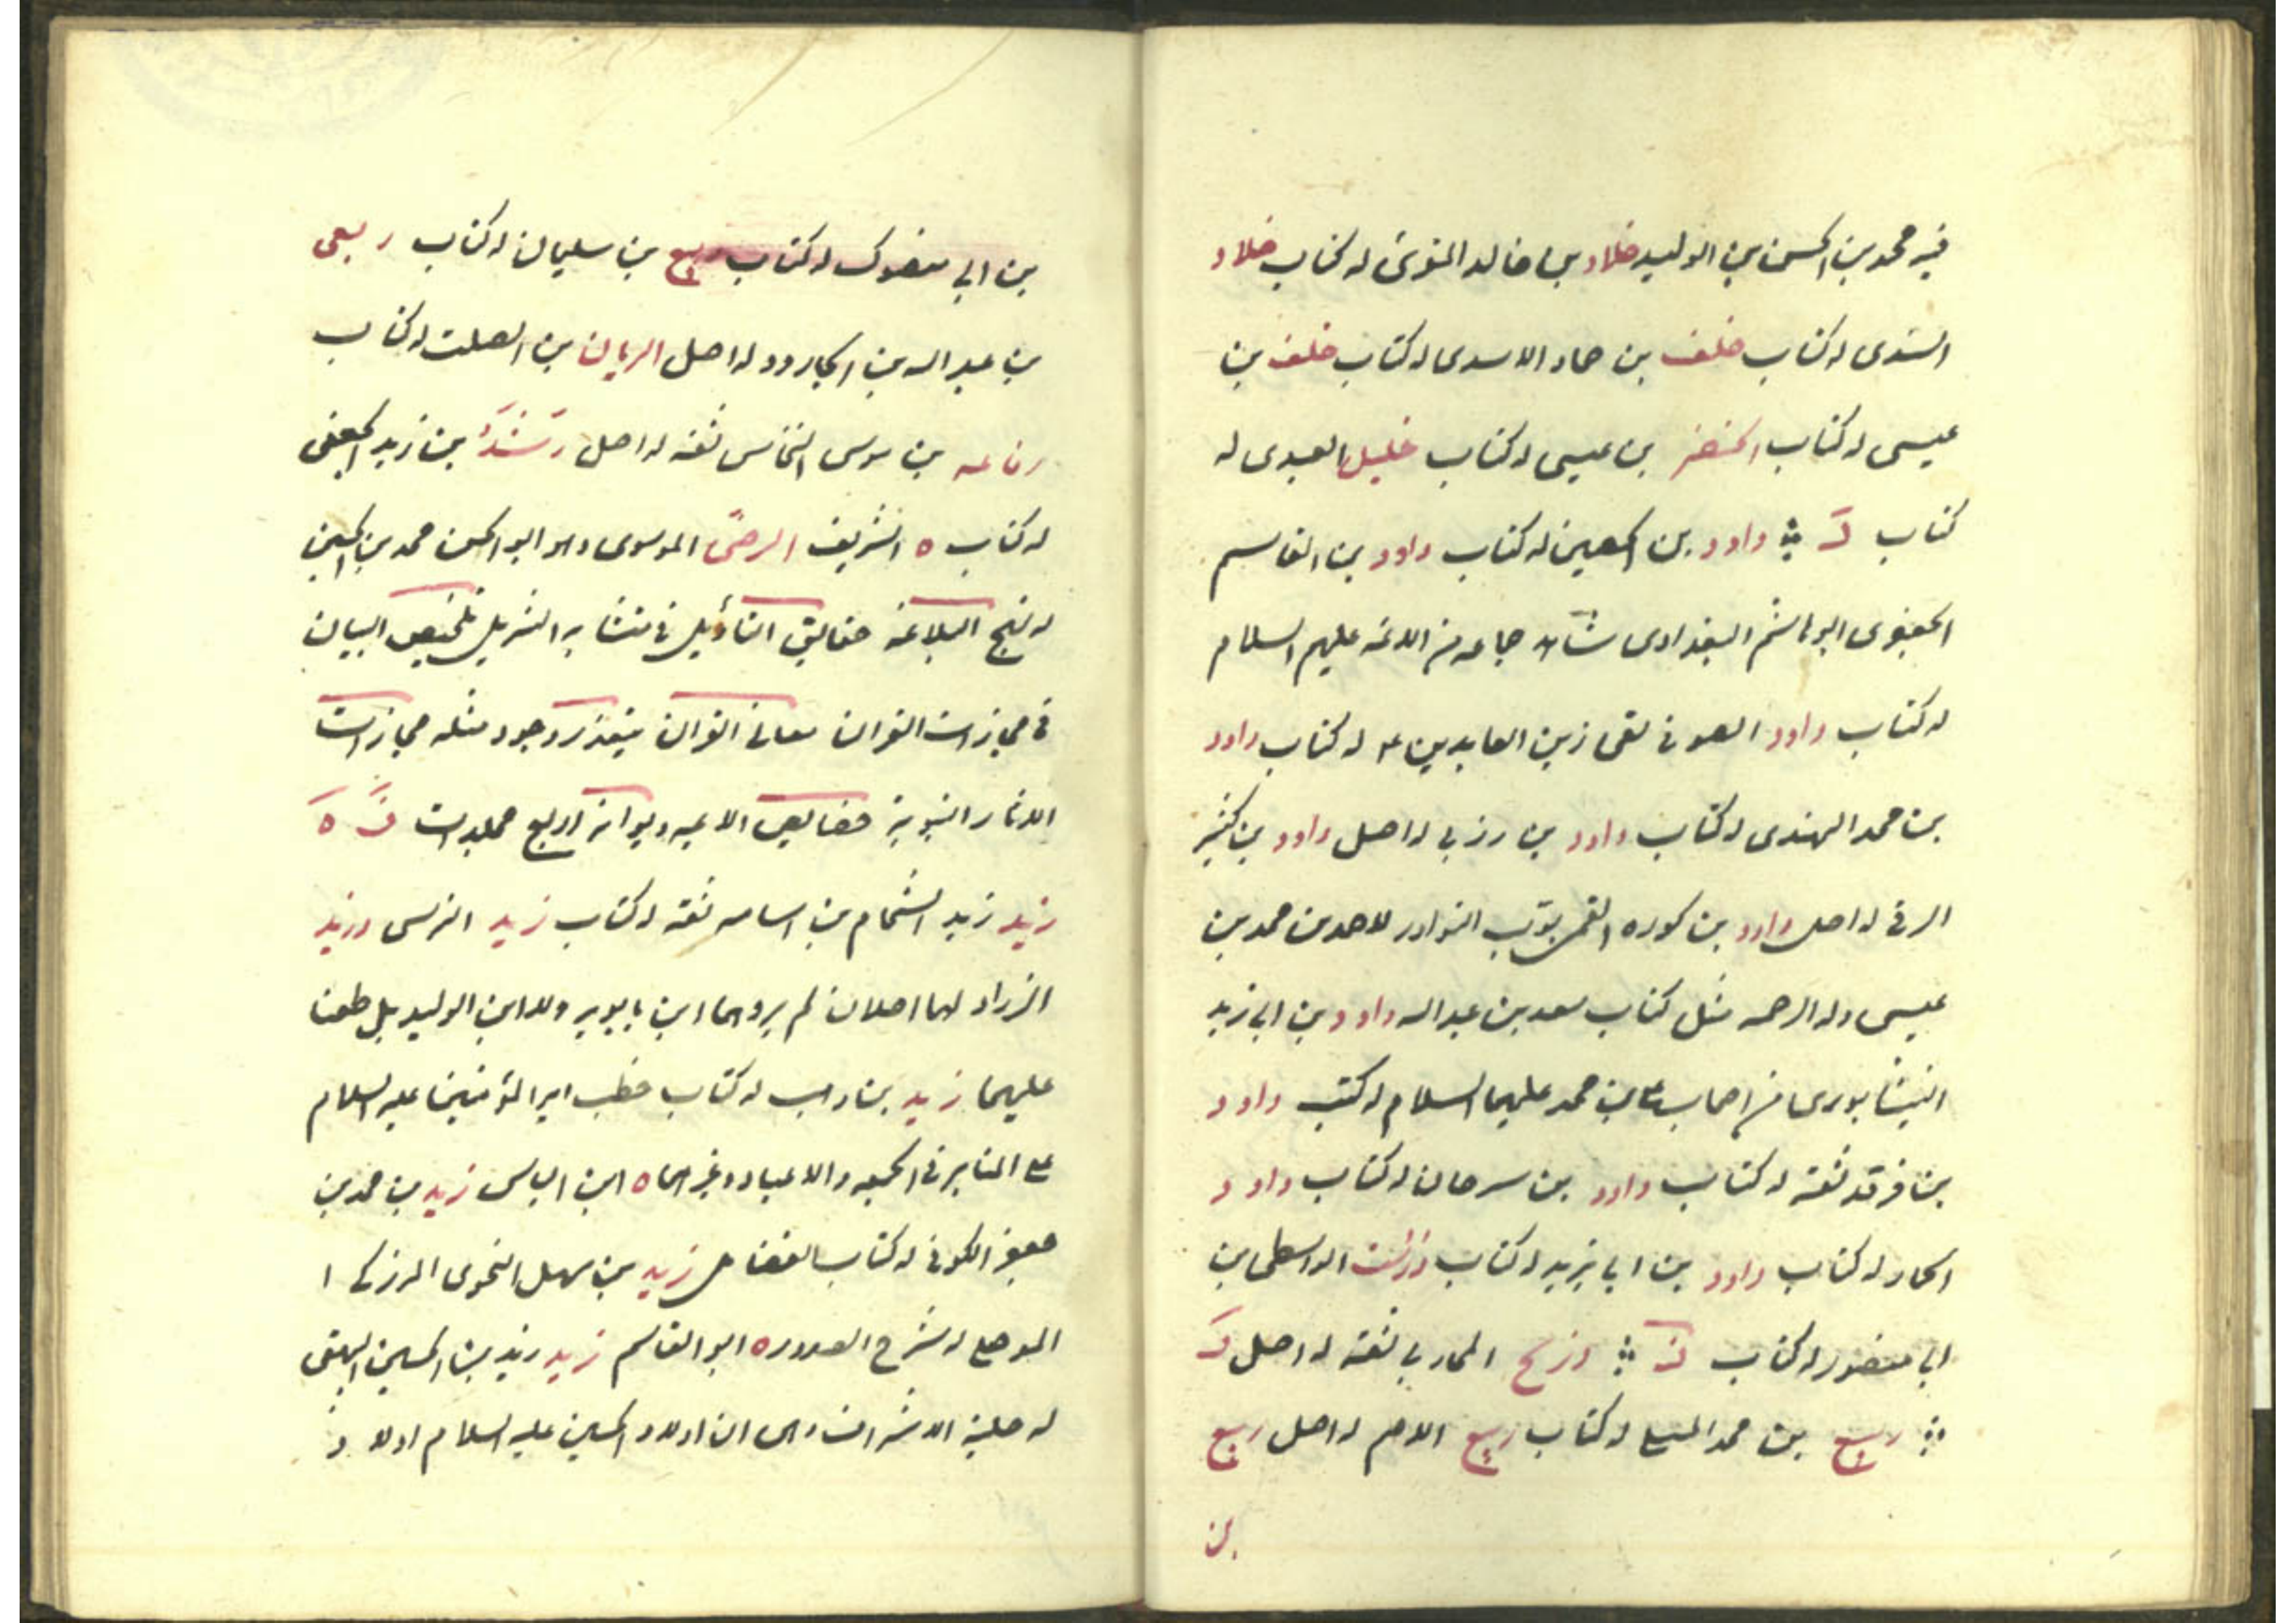 فيه محمد بن الحسن بن الوليد خلاد بن خالد المقرئ له كتاب خلاد
السندى له كتاب خلف بن حماد الاسدى له كتاب خلف بن
عيسى له كتاب الخضر بن عيسى له كتاب خليل العبدى له
كتاب د داود بن الحصين له كتاب داود بن القاسم
الجعفرى ابو هاشم البغدادى شاهد جماعه من الائمه عليهم السلام
له كتاب داود الصرفى لقى زين العابدين ع له كتاب داود
بن محمد النهدى له كتاب داود بن زربى له اصل داود بن كثير
الرقى له اصل داود بن كوره القمى بوّب النوادر لاحمد بن محمد بن
عيسى وله الرحمه مثل كتاب سعد بن عبد الله داود بن ابى زيد
النيشابورى من اصحاب على بن محمد عليهما السلام له كتب داود
بن فرقد ثقة له كتاب داود بن سرحان له كتاب داود
الحمار له كتاب داود بن ابى يزيد له كتاب درست الواسطى بن
ابى منصور له كتاب ذ ذريح المحاربى ثقة له اصل ر
ربيع بن محمد المسلى له كتاب ربيع الاصم له اصل ربيع
بن
بن ابى مدرك له كتاب ربيع بن سليمان له كتاب ربعى
بن عبد الله بن الجارود له اصل الريان بن الصلت له كتاب
رفاعه بن موسى النخاس ثقه له اصل رشد بن زيد الجعفى
له كتاب ه الشريف الرضىّ الموسوى وهو ابو الحسن محمد بن الحسين
له نهج البلاغه حقايق التأويل فى متشابه التنزيل تلخيص البيان
فى مجازات القران معانى القران يتعذر وجود مثله مجازات
الاثار النبوية خصايص الائمه ديوانه اربع مجلدات ز ه
زيد زيد الشحام بن اسامه ثقة له كتاب زيد النرسى وزيد
الزراد لهما اصلان لم يروهما ابن بابويه ولا ابن الوليد بل طعنا
عليهما زيد بن وهب له كتاب خطب امير المؤمنين عليه السلام
على المنابر فى الجمعه والاعياد وغيرهما ه ابن الياس زيد بن محمد بن
جعفر الكوفى له كتاب الفضائل زيد بن سهل النحوى المرزكى ا
الموصلى له شرح الصدور ه ابو القاسم زيد زيد بن الحسين البيهقى
له حلية الاشراف وهى ان اولاد الحسين عليه السلام اولاد